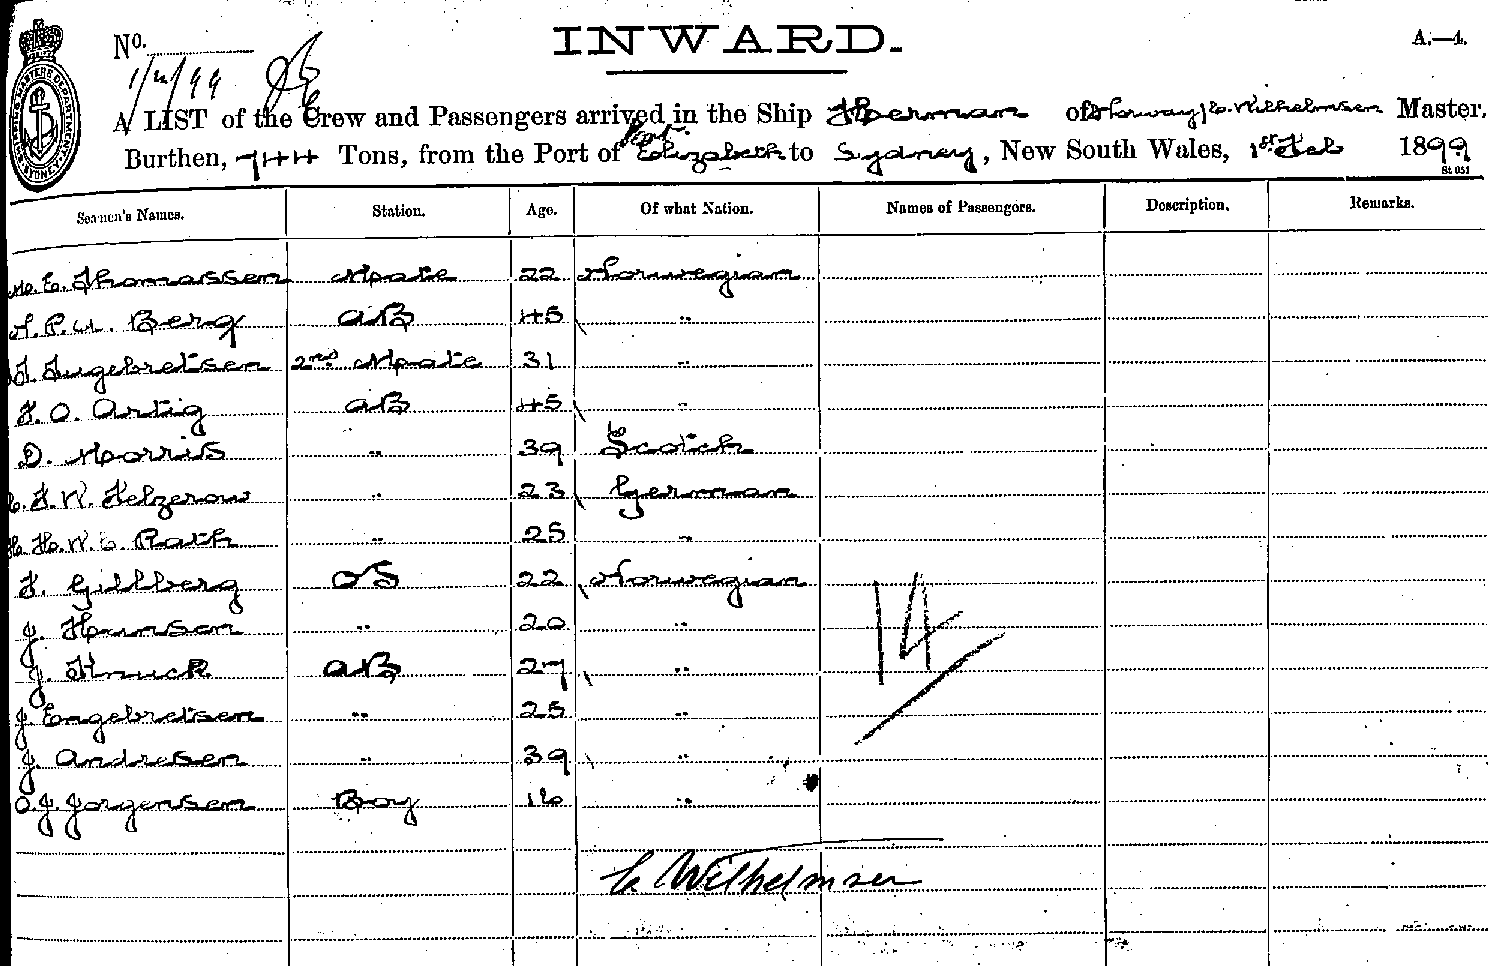 INWARD.
A.—4.
No.
1/2/99
A LIST of the Crew and Passengers arrived in the Ship Herman of Norway, C. Wilhelmsen Master,
Burthen, 744 Tons, from the Port of Port Elizabeth to Sydney, New South Wales, 1st Feb 1899
St 051
Seamen's Names. Station. Age. Of what Nation. Names of Passengers. Description. Remarks.
E. Thomassen Mate 22 Norwegian
Berg AB 45 "
2nd Mate 31 "
F. O. Artig AB 45 "
D. Morris " 39 Scotch
F. W. Helzerow " 23 German
H. W. C. Rath " 25 "
F. Gillberg OS 22 Norwegian
J. Hansen " 20 "
J. AB 27 "
J. Engebretsen " 25 "
J. Andresen " 39 "
O. J. Jorgensen Boy 16 "
14
C Wilhelmsen